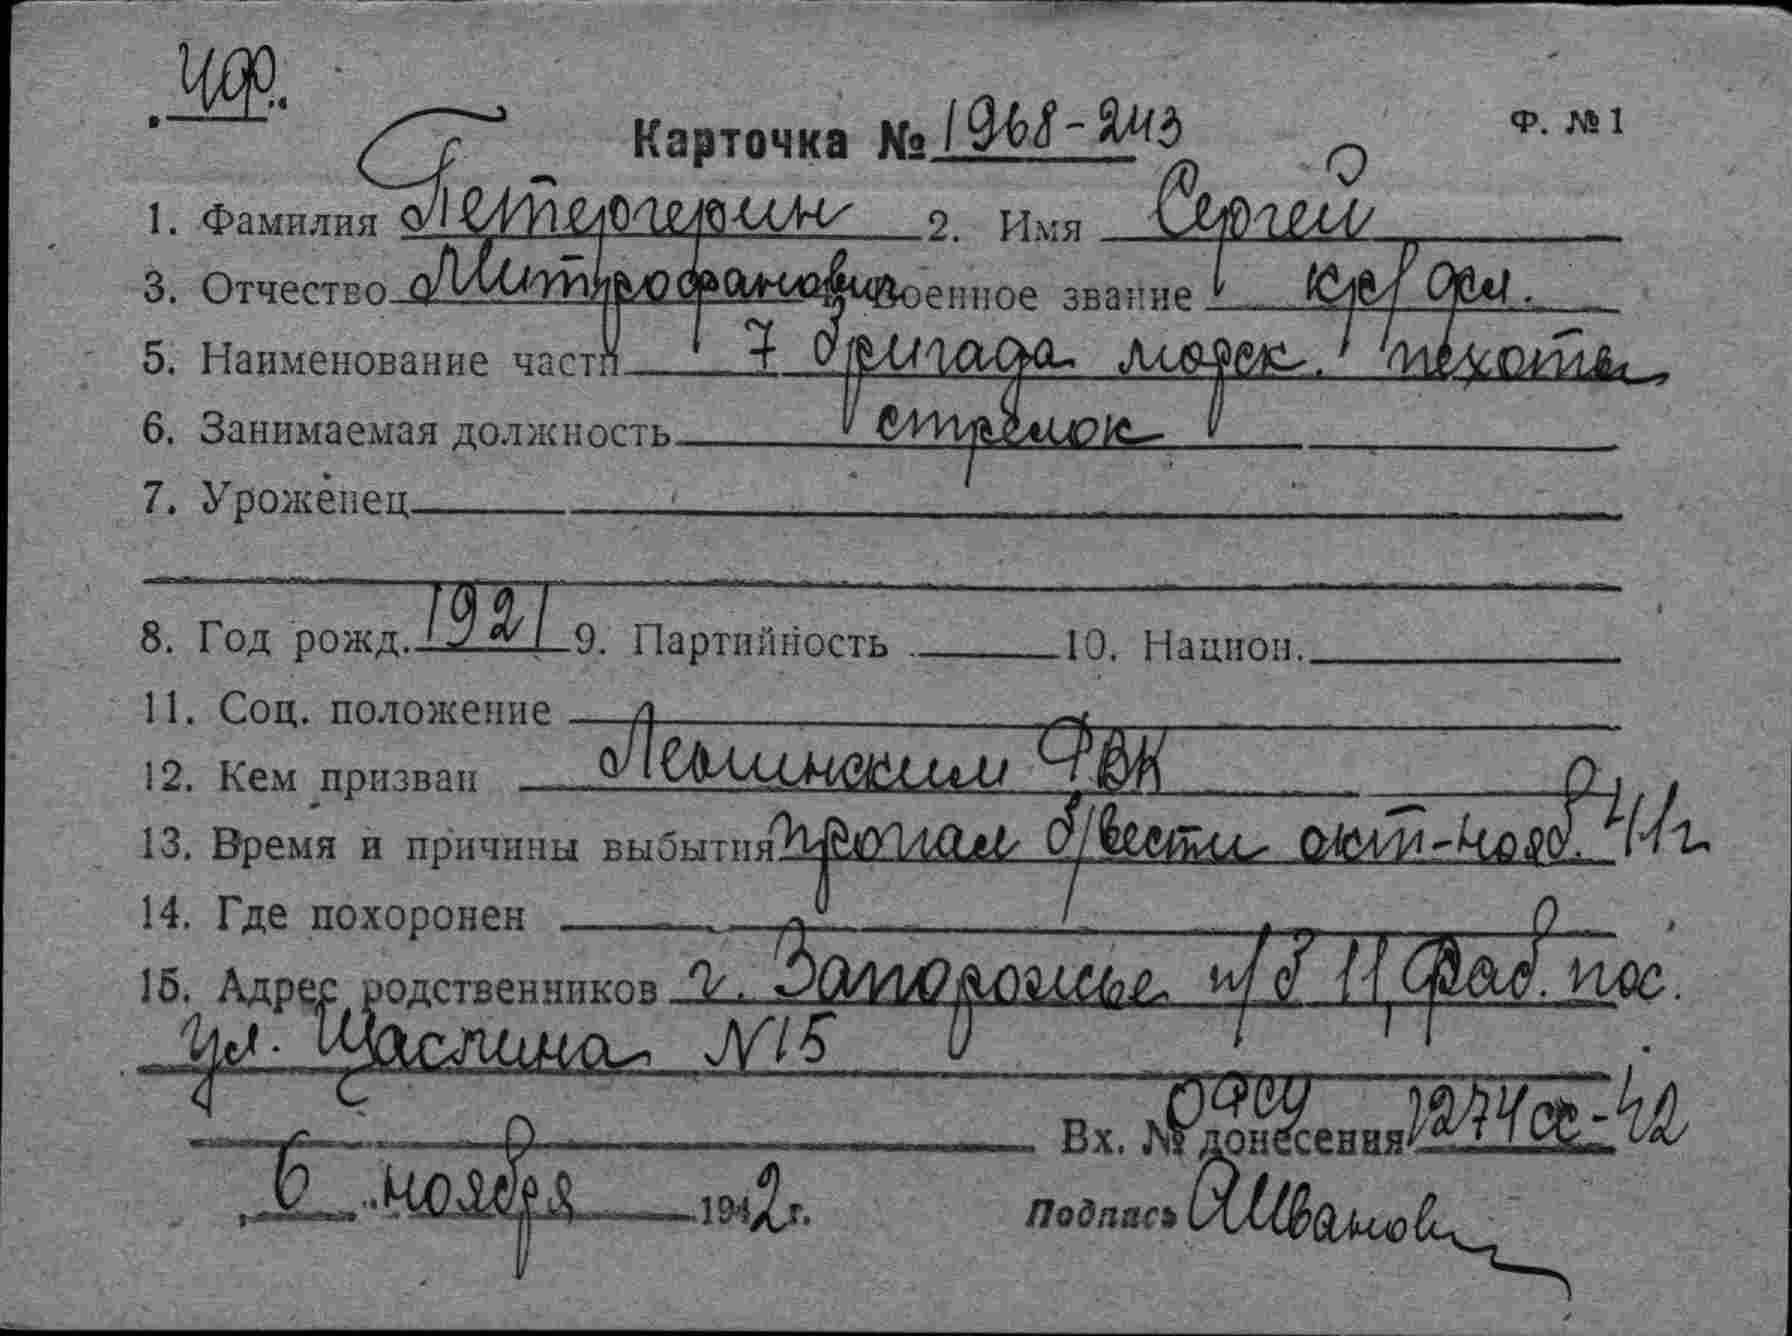 Карточка № 1968-243
Ф. № 1
1. Фамилия Петергерин 2. Имя Сергей
3. Отчество Митрофанович Военное звание кр/фл.
5. Наименование части 7 бригада морск. пехоты
6. Занимаемая должность стрелок
7. Уроженец
8. Год рожд. 1921 9. Партийность 10. Национ.
11. Соц. положение
12. Кем призван Ленинским РВК
13. Время и причины выбытия пропал б/вести окт-нояб. 41 г
14. Где похоронен
15. Адрес родственников г. Запорожье п/я 11, раб. пос.
ул. Щаслина N 15
Вх. № донесения 1274 сс-42
6 ноября 1942 г. Подпись АИванов